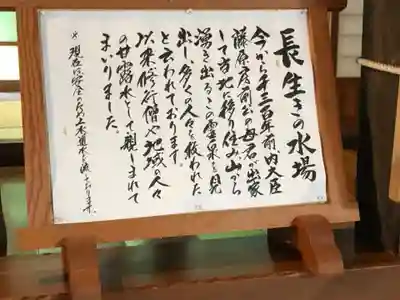 長生きの水場
今から千三百年前、内大臣
藤原房前公の母君が出家
して当地に移り住み山から
湧き出るこの霊泉を見
出し、多くの人々を救われた
と云われております。
以来、修行僧や地域の人々
の甘露水として親しまれて
まいりました。
※現在は安全のため上水道水を流しております。